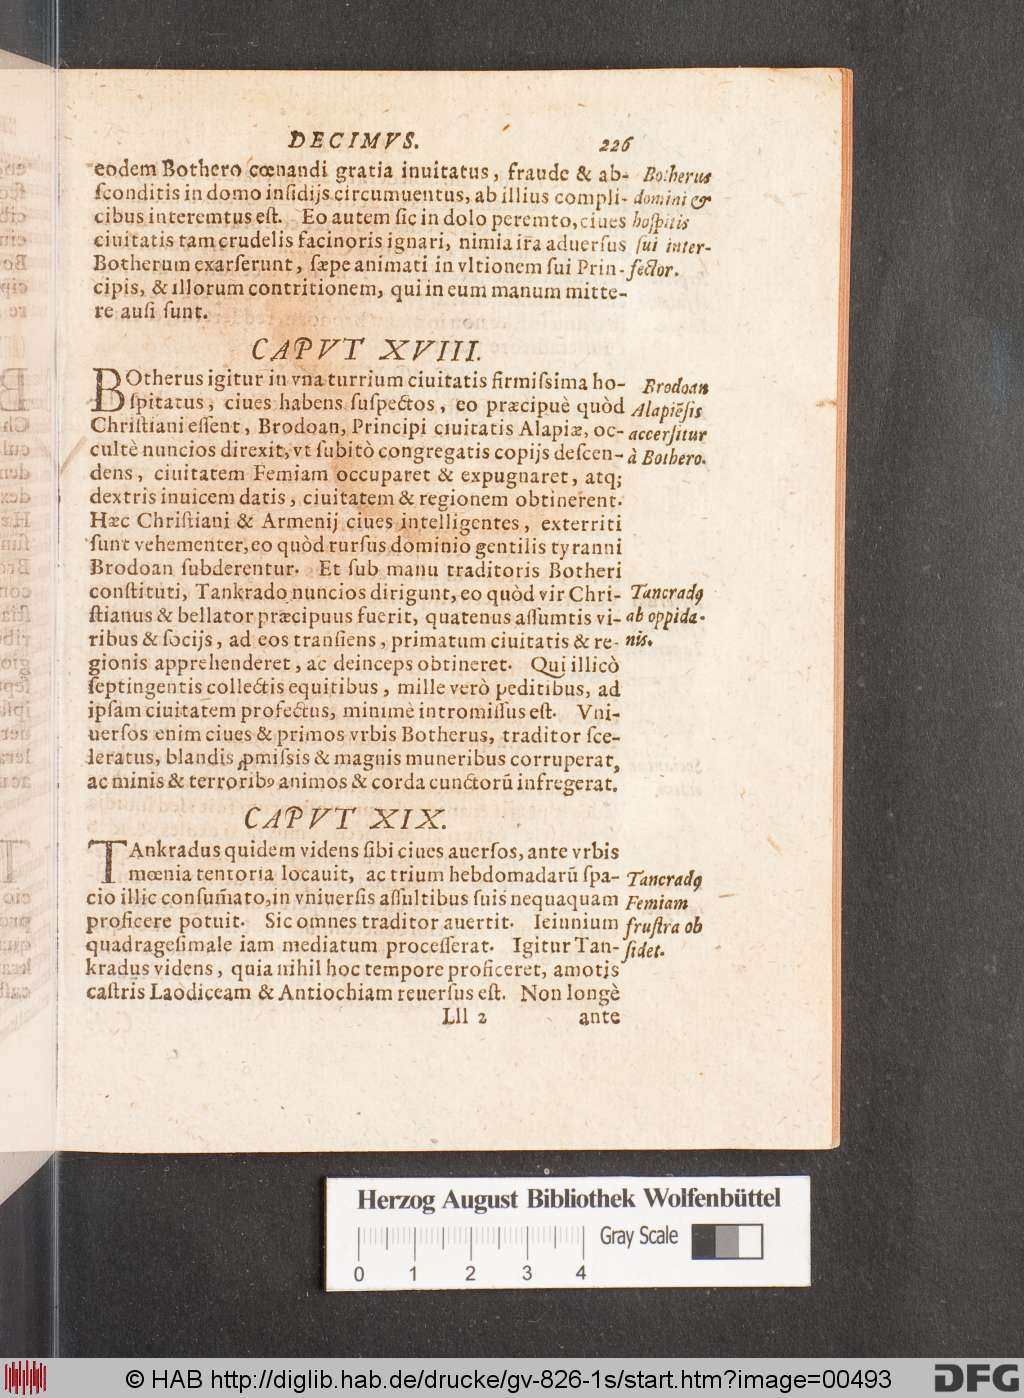 DECIMVS. 226
eodem Bothero cœnandi gratia inuitatus, fraude & ab-
ſconditis in domo inſidijs circumuentus, ab illius compli-
cibus interemtus eſt. Eo autem ſic in dolo peremto, ciues
ciuitatis tam crudelis facinoris ignari, nimia ira aduerſus
Botherum exarſerunt, ſæpe animati in vltionem ſui Prin-
cipis, & illorum contritionem, qui in eum manum mitte-
re auſi ſunt.
Botherus
domini &
hoſpitis
ſui inter-
fector.
CAPVT XVIII.
BOtherus igitur in vna turrium ciuitatis firmiſsima ho-
ſpitatus, ciues habens ſuſpectos, eo præcipuè quòd
Chriſtiani eſſent, Brodoan, Principi ciuitatis Alapiæ, oc-
cultè nuncios direxit, vt ſubitò congregatis copijs deſcen-
dens, ciuitatem Femiam occuparet & expugnaret, atq;
dextris inuicem datis, ciuitatem & regionem obtinerent.
Hæc Chriſtiani & Armenij ciues intelligentes, exterriti
ſunt vehementer, eo quòd rurſus dominio gentilis tyranni
Brodoan ſubderentur. Et ſub manu traditoris Botheri
conſtituti, Tankrado nuncios dirigunt, eo quòd vir Chri-
ſtianus & bellator præcipuus fuerit, quatenus aſſumtis vi-
ribus & ſocijs, ad eos tranſiens, primatum ciuitatis & re-
gionis apprehenderet, ac deinceps obtineret. Qui illicò
ſeptingentis collectis equitibus, mille verò peditibus, ad
ipſam ciuitatem profectus, minimè intromiſſus eſt. Vni-
uerſos enim ciues & primos vrbis Botherus, traditor ſce-
leratus, blandis ꝓmiſsis & magnis muneribus corruperat,
ac minis & terroribꝰ animos & corda cunctorũ infregerat.
Brodoan
Alapiẽſis
accerſitur
à Bothero.
Tancradꝰ
ab oppida-
nis.
CAPVT XIX.
TAnkradus quidem videns ſibi ciues auerſos, ante vrbis
mœnia tentoria locauit, ac trium hebdomadarũ ſpa-
cio illic conſum̃ato, in vniuerſis aſſultibus ſuis nequaquam
proficere potuit. Sic omnes traditor auertit. Ieiunium
quadrageſimale iam mediatum proceſſerat. Igitur Tan-
kradus videns, quia nihil hoc tempore proficeret, amotis
caſtris Laodiceam & Antiochiam reuerſus eſt. Non longè
Tancradꝰ
Femiam
fruſtra ob
ſidet.
Lll 2 ante
Herzog August Bibliothek Wolfenbüttel
Gray Scale
0 1 2 3 4
© HAB http://diglib.hab.de/drucke/gv-826-1s/start.htm?image=00493
DFG